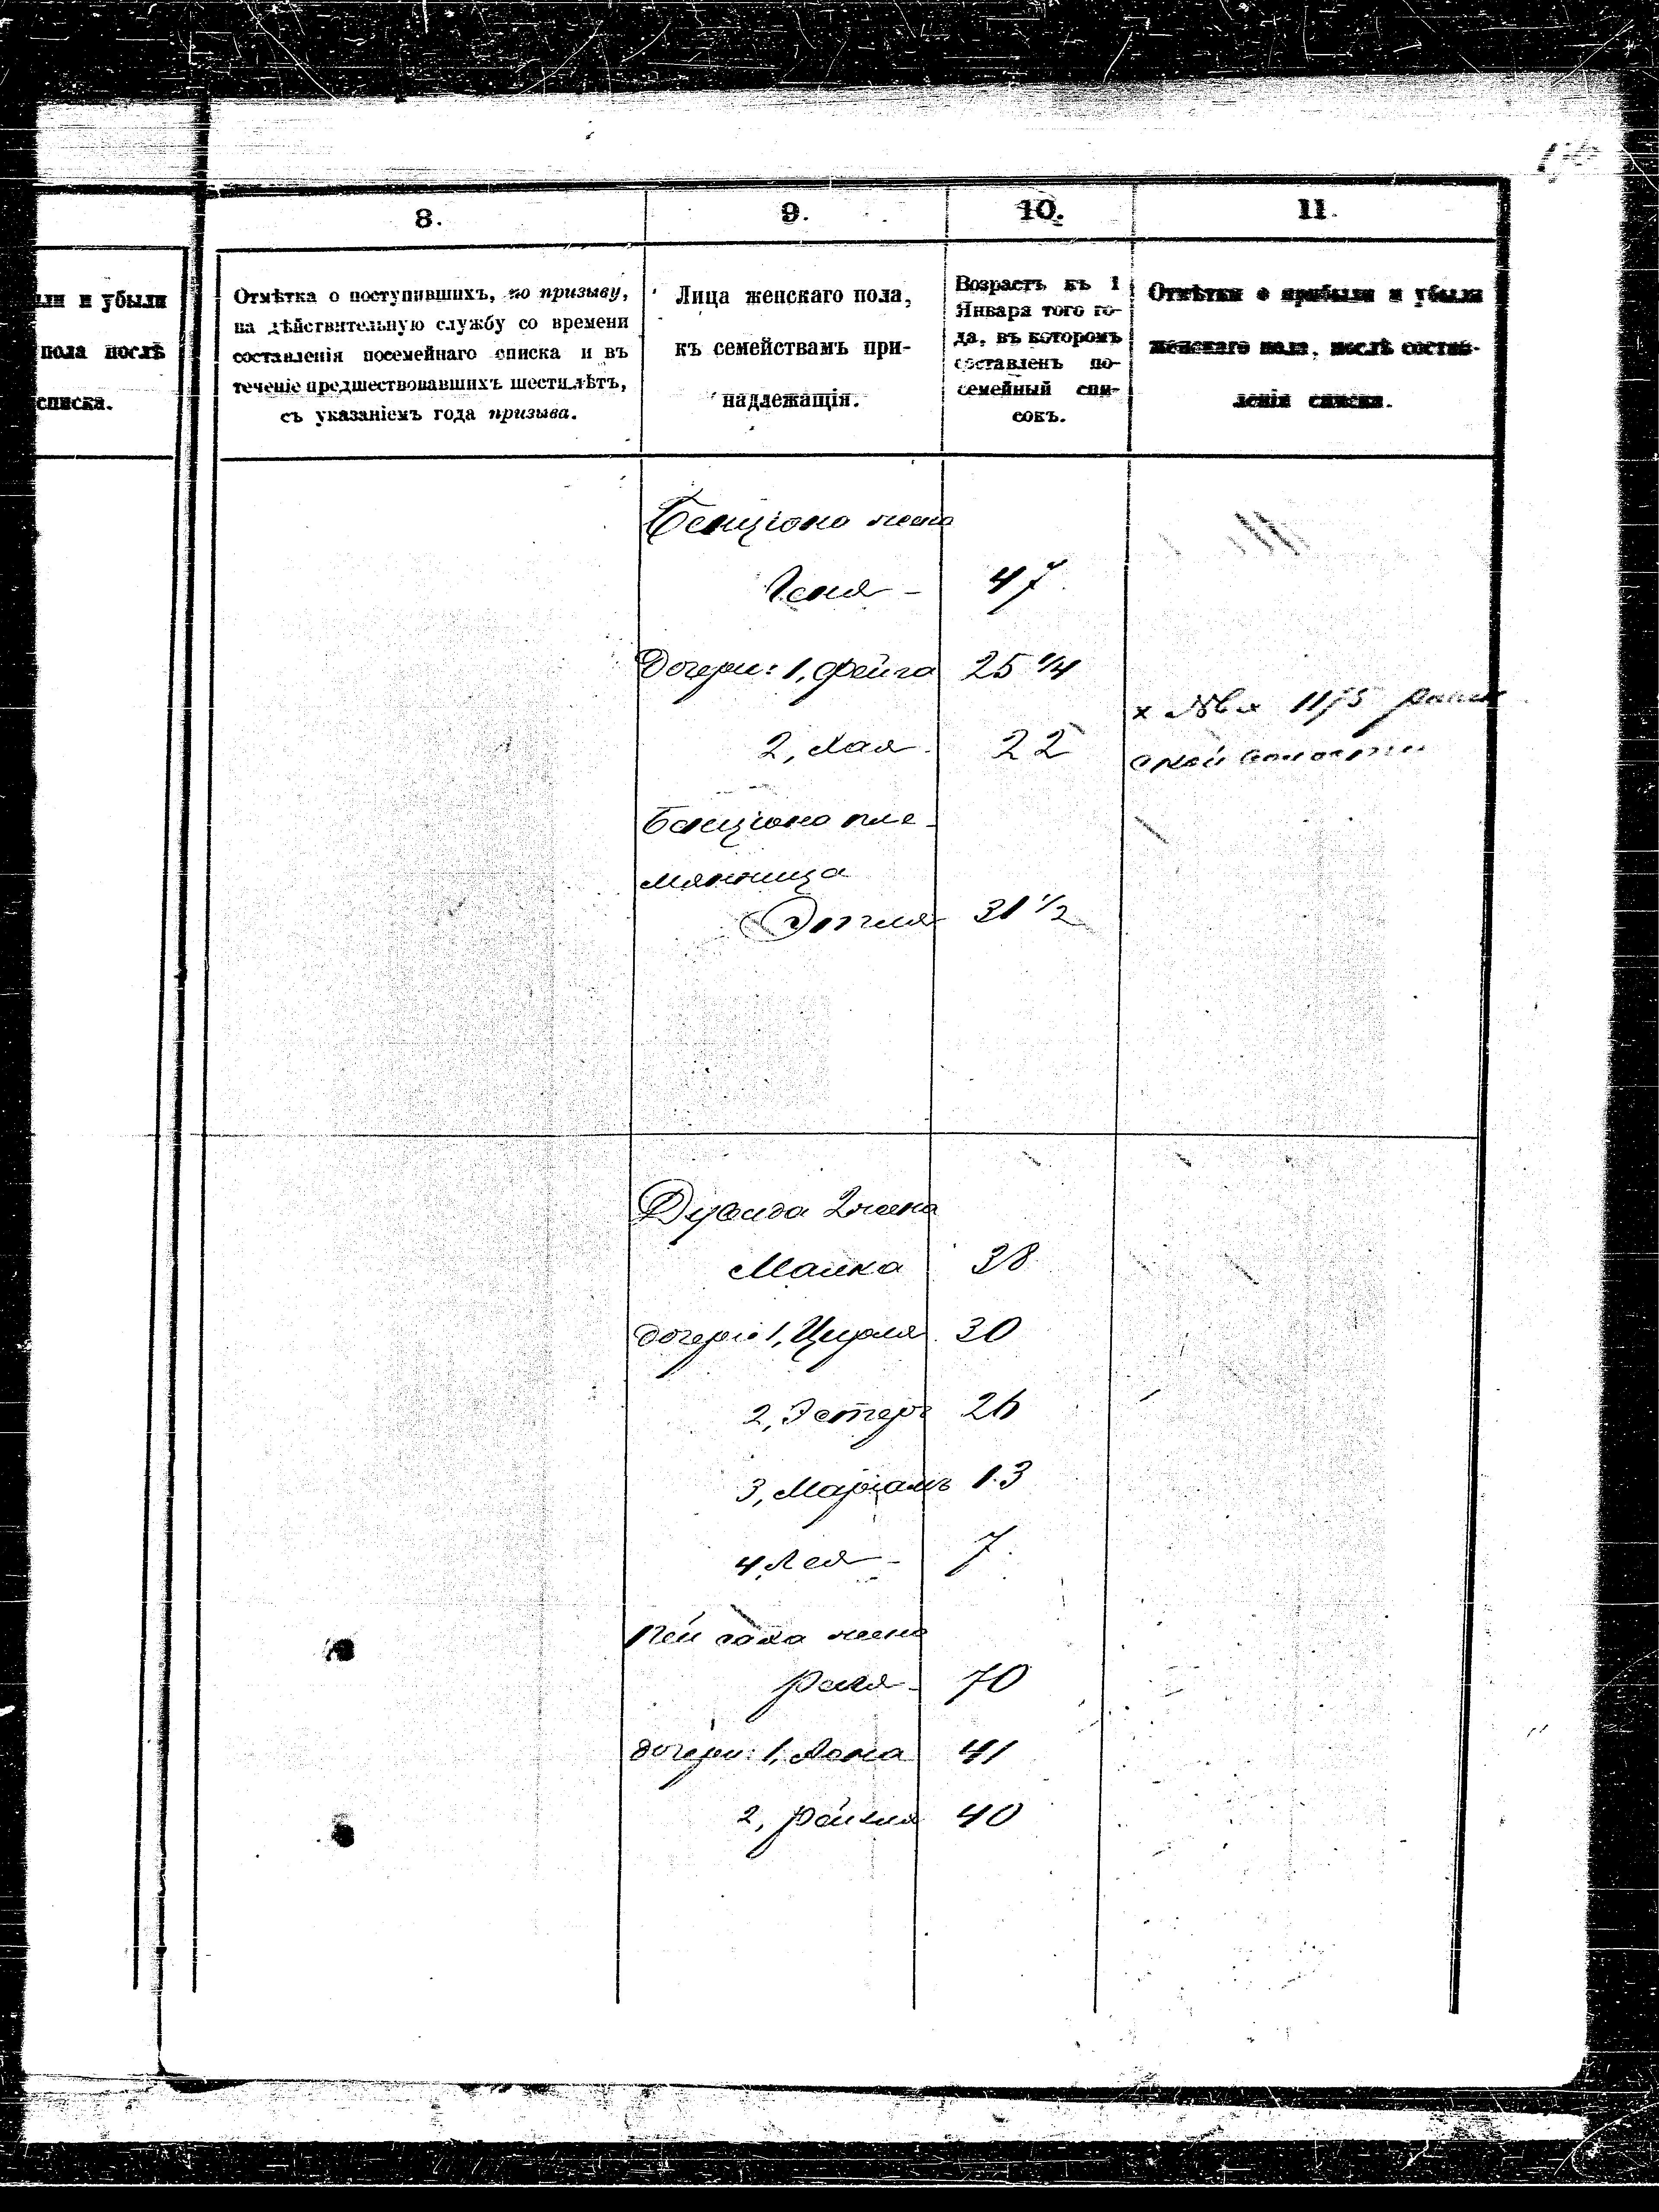 8.
9.
10.
11.
ли и убыли
пола послѣ
списка.
Отмѣтка о поступившихъ, по призыву,
на дѣйствительную службу со времени
составленія посемейнаго списка и въ
теченіе предшествовавшихъ шести лѣтъ,
съ указаніемъ года призыва.
Лица женскаго пола,
къ семействамъ при-
надлежащія.
Возрастъ къ 1
Января того го-
да, въ которомъ
составленъ по-
семейный спи-
сокъ.
Отмѣтки о прибыли и убыли
женскаго пола, послѣ состав-
ленія списка.
Бенціона жена
Геня - 47
Дочери: 1, Фейга 25 1/4
2, Хая 22
х 1175
ской волости
Бенціона пле-
мянница
Этля 31 1/2
Дувида 2 жена
Малка 38
дочери 1, Цирля 30
2, Эстеръ 26
3, Маріамъ 13
4, Лея - 7
Пейсаха жена
70
дочери: 1, 41
2, 40